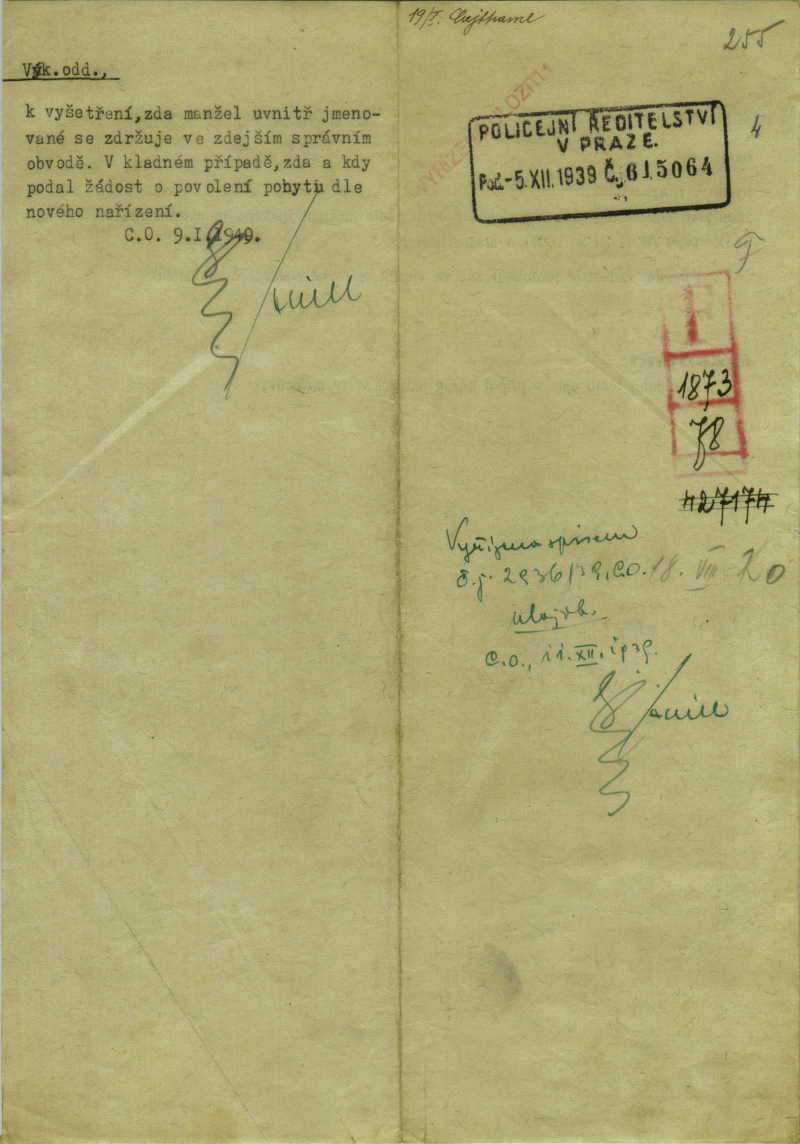 Výk.odd.,
k vyšetření,zda manžel uvnitř jmeno-
vané se zdržuje ve zdejším správním
obvodě. V kladném případě,zda a kdy
podal žádost o povolení pobytu dle
nového nařízení.
C.O. 9.I.1940.
19/I.
255
POLICEJNÍ ŘEDITELSTVÍ
V PRAZE.
Pod.-5.XII.1939 Č.j. 615064
4
1873
78
27174
Vyřízeno spisem
č.j. 2936/39, C.O. 18. VIII 20
C.O., 11.XII.1939.